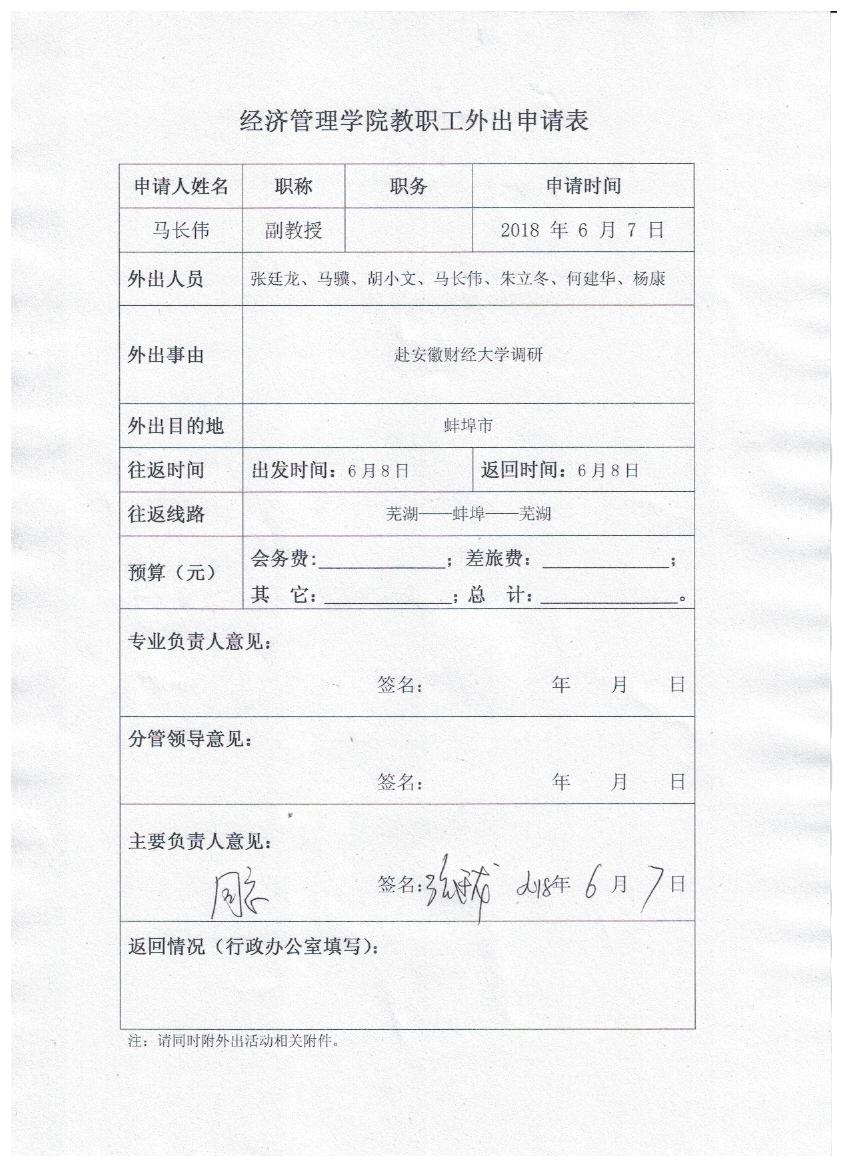 经济管理学院教职工外出申请表
申请人姓名 职称 职务 申请时间
马长伟 副教授 2018 年 6 月 7 日
外出人员 张廷龙、马骥、胡小文、马长伟、朱立冬、何建华、杨康
外出事由 赴安徽财经大学调研
外出目的地 蚌埠市
往返时间 出发时间：6月8日 返回时间：6月8日
往返线路 芜湖——蚌埠——芜湖
预算（元） 会务费:____________； 差旅费：____________；
其 它：____________；总 计：_____________。
专业负责人意见：
签名： 年 月 日
分管领导意见：
签名： 年 月 日
主要负责人意见：
同意 签名：张廷龙 2018年 6 月 7 日
返回情况（行政办公室填写）：
注：请同时附外出活动相关附件。